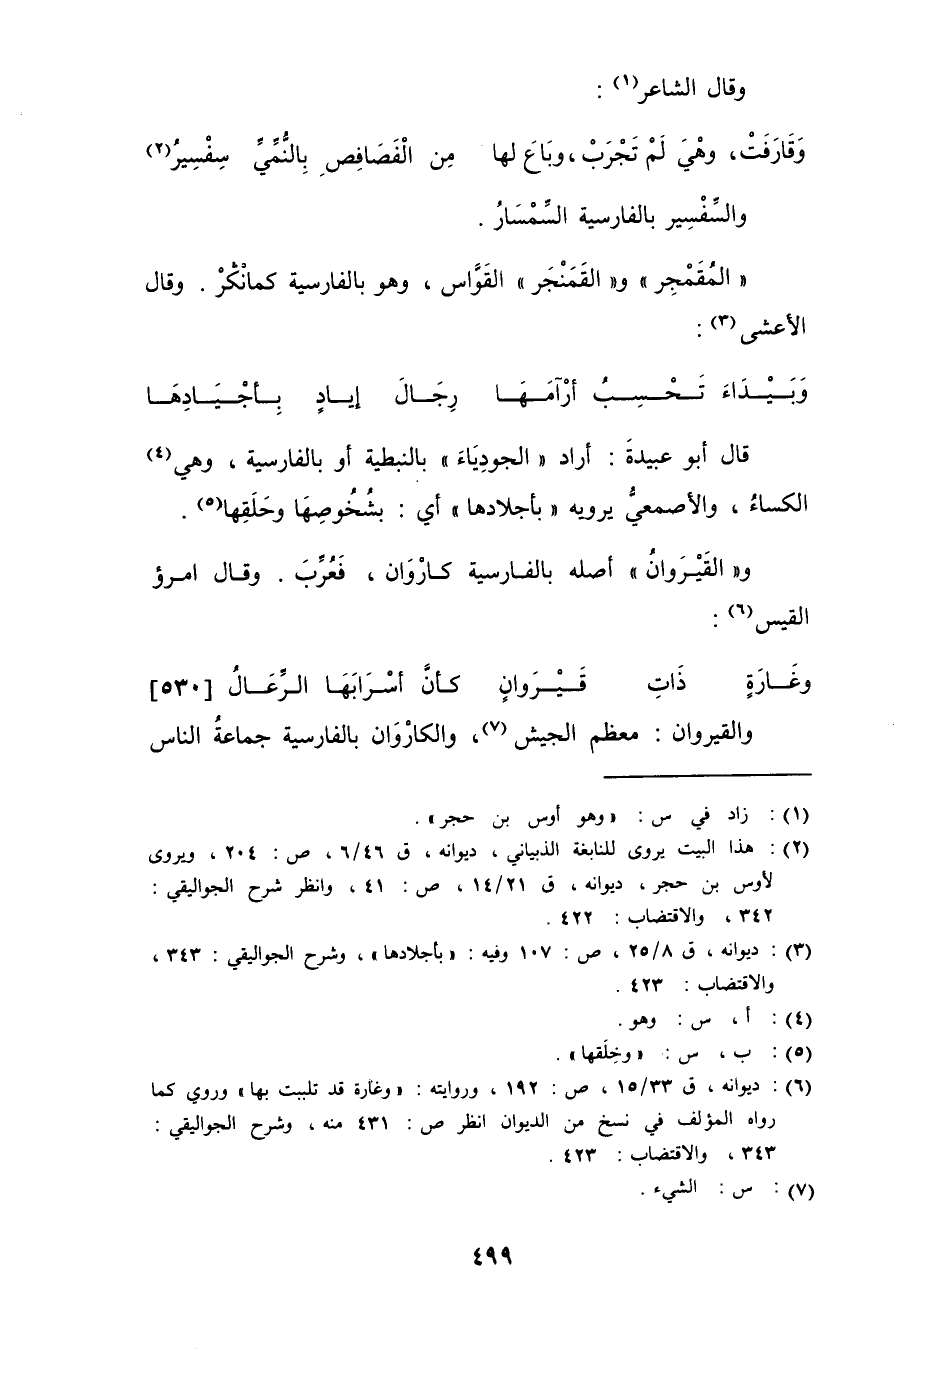 وقال الشاعر(١) :
وَقَارَفَتْ، وهْيَ لَمْ تَجْرَبْ، وبَاعَ لها مِن الْفَصَافِصِ بِالنُّمِّيِّ سِفْسِيرُ(٢)
والسِّفْسِير بالفارسية السِّمْسَارُ .
« المُقَمْجِر » و« القَمَنْجَر » القَوَّاس ، وهو بالفارسية كمانْكَرْ . وقال
الأعشى(٣) :
وَبَيْدَاءَ تَحْسِبُ أرْآمَهَا رِجَالَ إيادٍ بِأجْيَادِهَا
قال أبو عبيدةَ : أراد « الجودِيَاءَ » بالنبطية أو بالفارسية ، وهي(٤)
الكساءُ ، والأصمعيُّ يرويه « بأجلادها » أي : بشُخُوصِهَا وخَلَقِها(٥) .
و« القَيْرَوانُ » أصله بالفارسية كارْوَان ، فَعُرِّبَ . وقال امرؤ
القيس(٦) :
وغَارَةٍ ذَاتِ قَيْرَوانٍ كأنَّ أسْرَابَهَا الرِّعَالُ [٥٣٠]
والقيروان : معظم الجيش(٧)، والكارْوَان بالفارسية جماعةُ الناس
(١) : زاد في س : «وهو أوس بن حجر» .
(٢) : هذا البيت يروى للنابغة الذبياني ، ديوانه ، ق ٦/٤٦ ، ص : ٢٠٤ ، ويروى
لأوس بن حجر ، ديوانه ، ق ١٤/٢١ ، ص : ٤١ ، وانظر شرح الجواليقي :
٣٤٢ ، والاقتضاب : ٤٢٢ .
(٣) : ديوانه ، ق ٢٥/٨ ، ص : ١٠٧ وفيه : «بأجلادها» ، وشرح الجواليقي : ٣٤٣ ،
والاقتضاب : ٤٢٣ .
(٤) : أ ، س : وهو .
(٥) : ب ، س : «وخِلَقها» .
(٦) : ديوانه ، ق ١٥/٣٣ ، ص : ١٩٢ ، وروايته : «وغارة قد تلببت بها» وروي كما
رواه المؤلف في نسخ من الديوان انظر ص : ٤٣١ منه ، وشرح الجواليقي :
٣٤٣ ، والاقتضاب : ٤٢٣ .
(٧) : س : الشيء .
٤٩٩